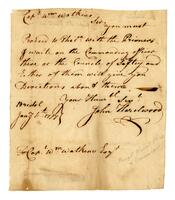 Capt Wm Watkins
Sir you must
Proceed to Phila. with the Prisoners
& wait on the Commanding officer
there or the Council of Safety and
Either of them will give you
Directions about them
Your Hum
Bristol
Jany 6 John Hazelwood
To Cap. Wm Watkins Esqr